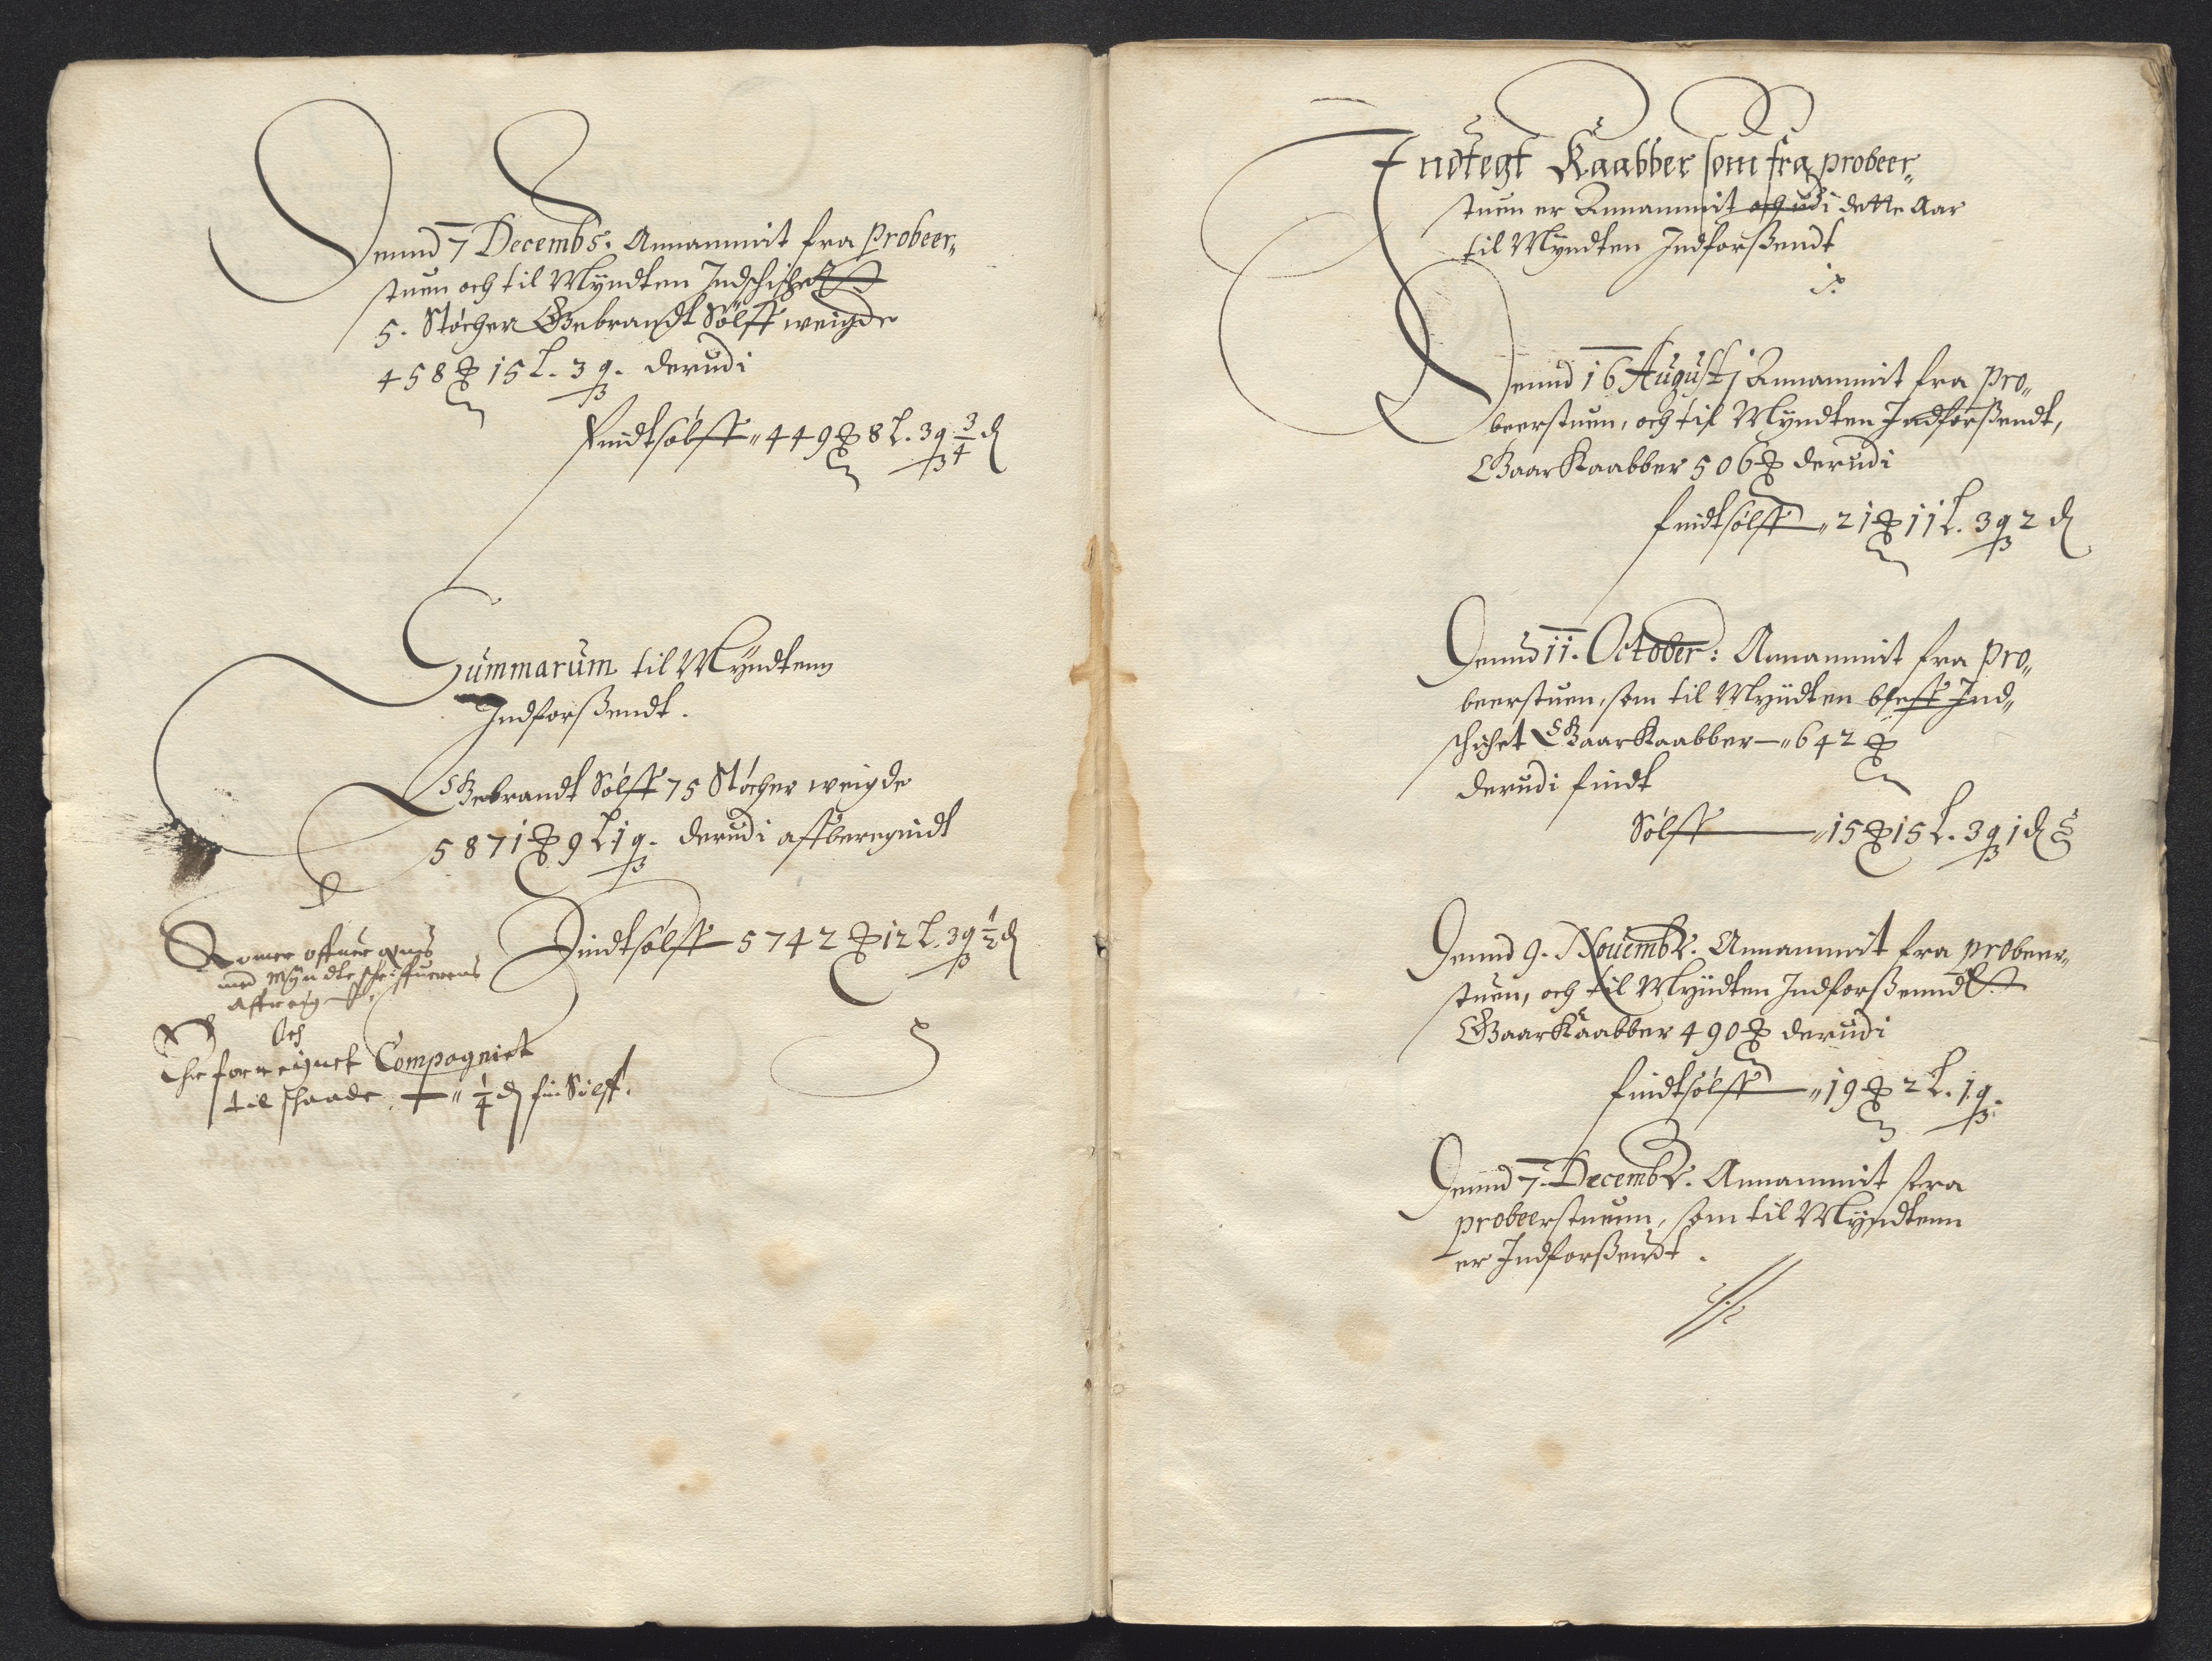 Dennd 7 Decembs. Annammit fra Probeer„
stuen och til Myndten Indschichet
5. Støcher Gebrandt Sølff weigde
458 ℔ 15 L. 3 q. derudi
findtsølff „ 449 ℔ 8 L. 3 q 3/4 ₰
Summarum til Myndtenn
Indforßendt.
Gebrandt Sølff 75 Støcher weigde
5871 ℔ 9 L 1 q. derudi affberegnidt
Findtsølff 5742 ℔ 12 L. 3 q 1/2 ₰
Komer offuer eens
med Myndteschriffuerens
Affregning
Och
er forregnet Compagniet
til schaade „ 1/4 ₰ fin Sølff.
Indtegt Kaabber som fra probeer„
stuen er Annammit och udi dette Aar
til Myndten Indforßendt
Dennd 16 Augusti Annammit fra Pro„
beerstuen, och til Myndten Indforßendt,
GaarKaabber 506 ℔ derudi
findtsølff „ 21 ℔ 11 L. 3 q 2 ₰
Dennd 11. October: Annammit fra Pro„
beerstuen, som til Myndten bleff Ind„
schichet GaarKaabber „ 642 ℔
derudi findt
Sølff „ 15 ℔ 15 L. 3 q 1 ₰
Dennd 9. Nouembr. Annammit fra probeer„
stuen, och til Myndten Indforßenndt
GaarKaabber 490 ℔ derudi
findtsølff „ 19 ℔ 2 L. 1 q.
Dennd 7. Decembr. Annammit fra
probeerstuenn, som til Myndtenn
er Indforßendt.